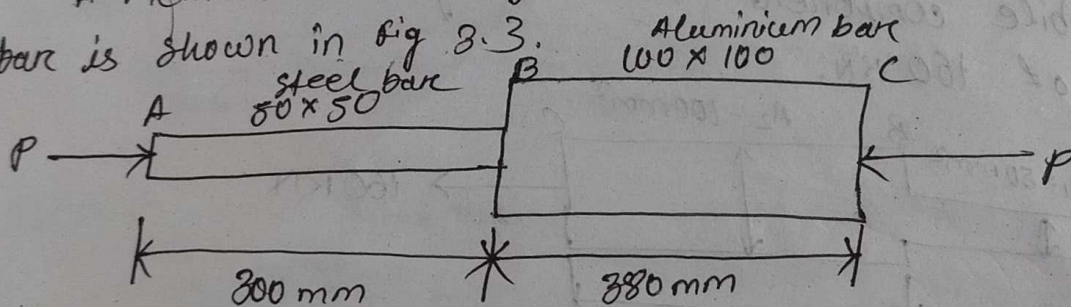 bar is shown in fig 3.3.
Aluminium bar
100 x 100
steel bar
50 x 50
A
B
C
P
P
300 mm
380 mm